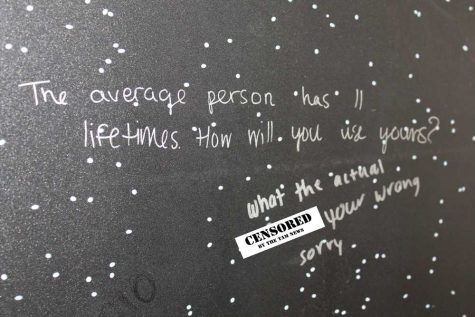 The average person has 11
lifetimes. How will you use yours?
what the actual
CENSORED
BY THE TAM NEWS
your wrong
sorry